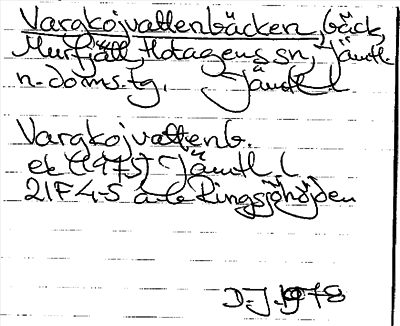 Vargkojvattenbäcken, bäck,
Murfjäll, Hotagens sn, Jämtl.
n. doms.tg. Jämtl. l
Vargkojvattenb.
ek (1975) Jämtl. l
21F 4-5 a-c Ringsjöhöjden
D.J. 1978